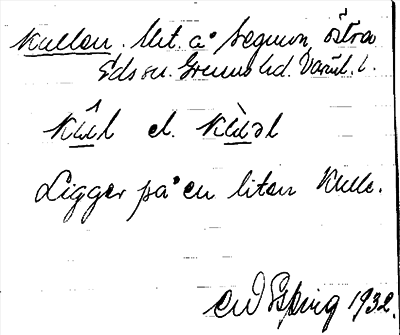 Kullen. Utt. å Segmon, östra
Eds sn. Grums hd. Värml. l.
Kûl el. Kùəl
Ligger på en liten Kulle.
Esping 1932.